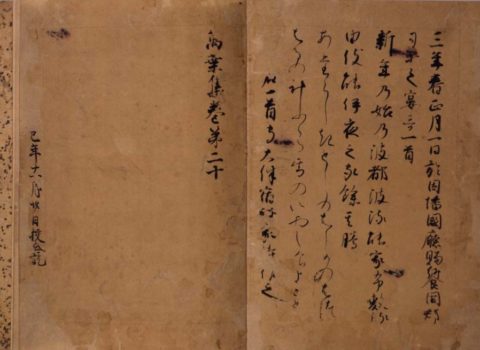 三年春正月一日於因幡國廳賜饗國郡
司等之宴哥一首
新年乃始乃波都波流能家布敷流
由伎能伊夜之家餘其騰
あたらしきとしのはしめのはつは
るのけふふるゆきのいやしけよこと
右一首守大伴宿祢家持作之
萬葉集卷第二十